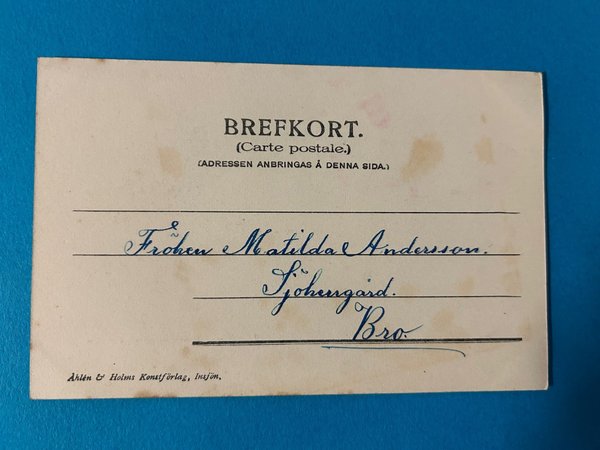 BREFKORT.
(Carte postale.)
(ADRESSEN ANBRINGAS Å DENNA SIDA.)
Fröken Matilda Andersson.
Sjöhemgård.
Bro.
Åhlén & Holms Konstförlag, Insjön.